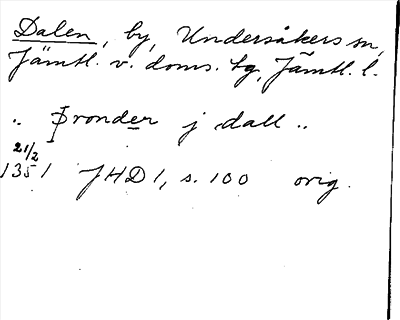 Dalen, by, Undersåkers sn,
Jämtl. v. doms. tg, Jämtl. l.
.. Þronder j dall ..
21/2
1351 JHD 1, s. 100 orig.